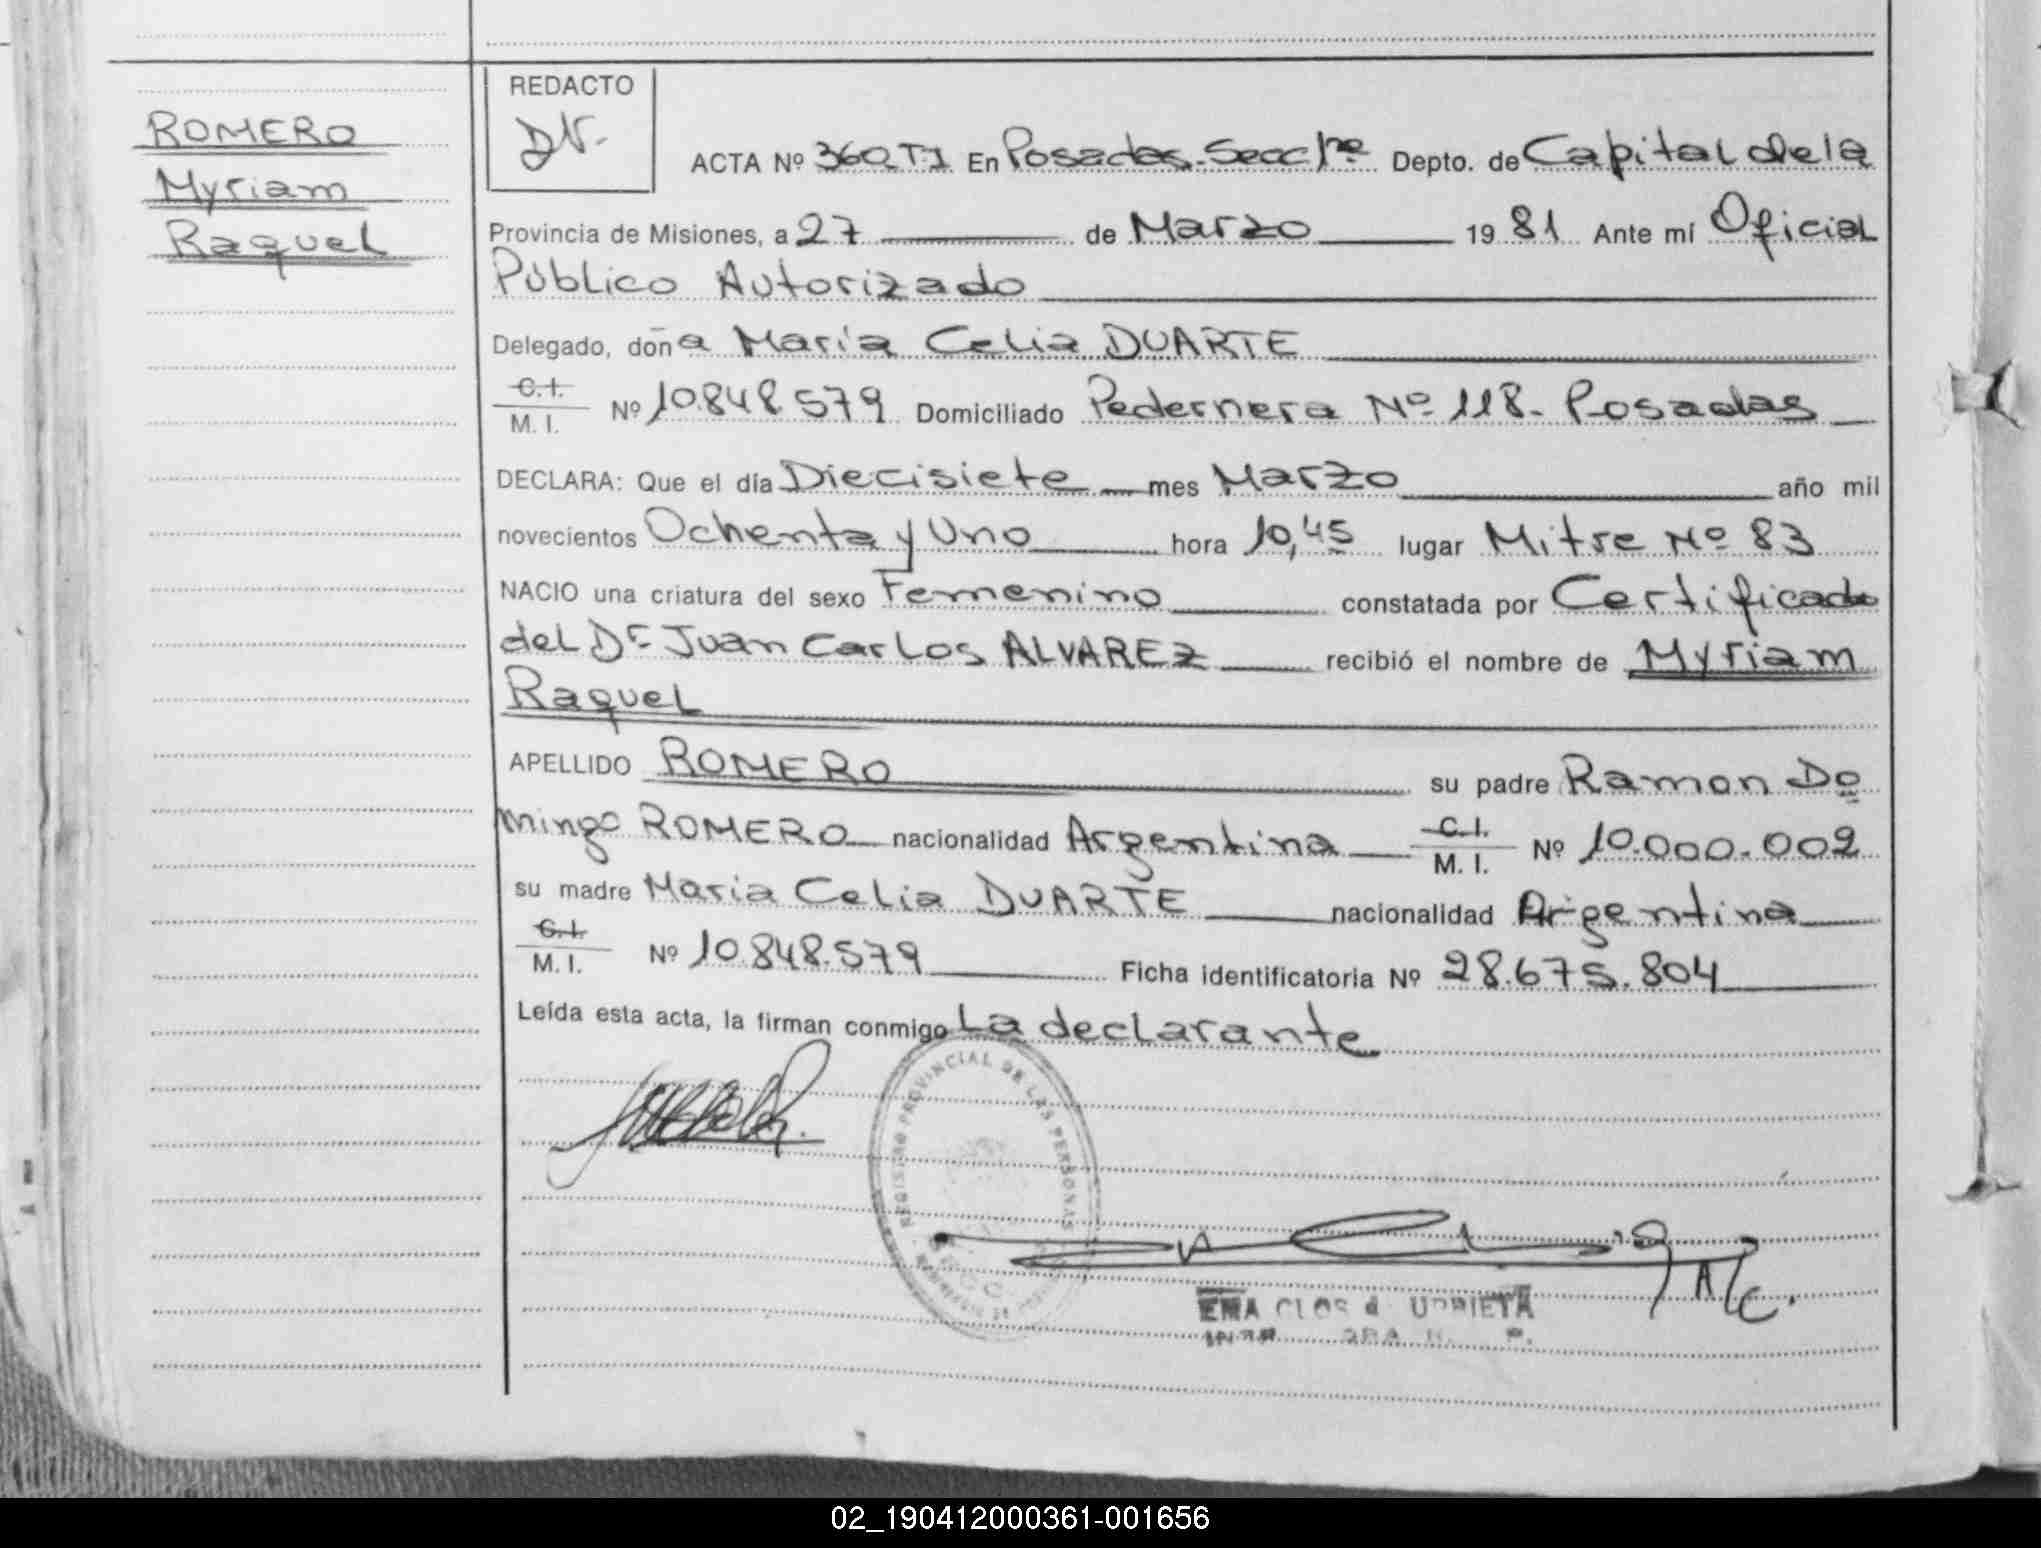 ROMERO
Myriam
Raquel
REDACTO
DV.
ACTA Nº 360.T.I En Posadas. Secc 1ra Depto. de Capital de la
Provincia de Misiones, a 27 de Marzo 19 81 Ante mí Oficial
Público Autorizado
Delegado, doña María Celia DUARTE
C.I.
M. I. Nº 10.848.579 Domiciliado Pedernera Nº 118. Posadas
DECLARA: Que el día Diecisiete mes Marzo año mil
novecientos Ochenta y Uno hora 10,45 lugar Mitre Nº 83
NACIO una criatura del sexo Femenino constatada por Certificado
del Dr Juan Carlos ALVAREZ recibió el nombre de Myriam
Raquel
APELLIDO ROMERO su padre Ramon Do
mingo ROMERO nacionalidad Argentina C.I. M. I. Nº 10.000.002
su madre Maria Celia DUARTE nacionalidad Argentina
C.I.
M. I. Nº 10.848.579 Ficha identificatoria Nº 28.675.804
Leída esta acta, la firman conmigo La declarante
REGISTRO PROVINCIAL DE LAS PERSONAS
EMA CLOS d URRIETA
02_190412000361-001656